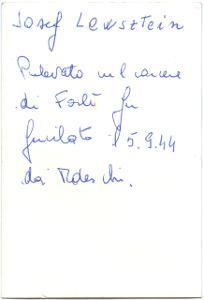 Josef Lewsztein
Prelevato nel carcere
di Forlì fu
fucilato il 5.9.44
dai Tedeschi.